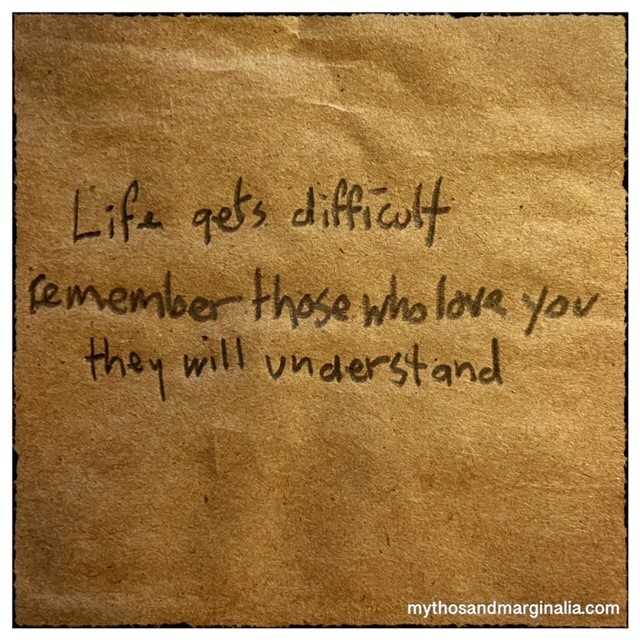 Life gets difficult
remember those who love you
they will understand
mythosandmarginalia.com